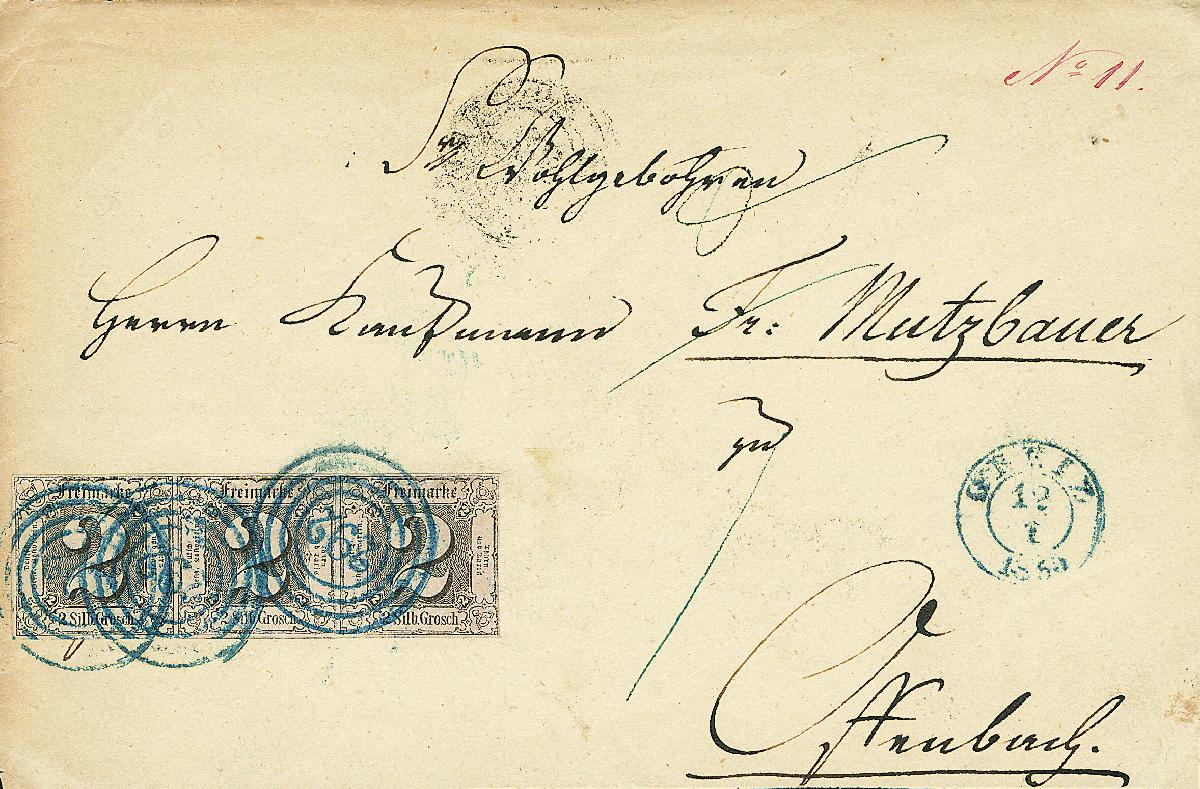 No 11.
Sr Wohlgebohren
Herrn Kaufmann Fr: Mutzbauer
zu
Offenbach.
GREIZ
12
1
Freimarke Freimarke Freimarke
2 2 2
2 Silb. Grosch. 2 Silb. Grosch. 2 Silb. Grosch.